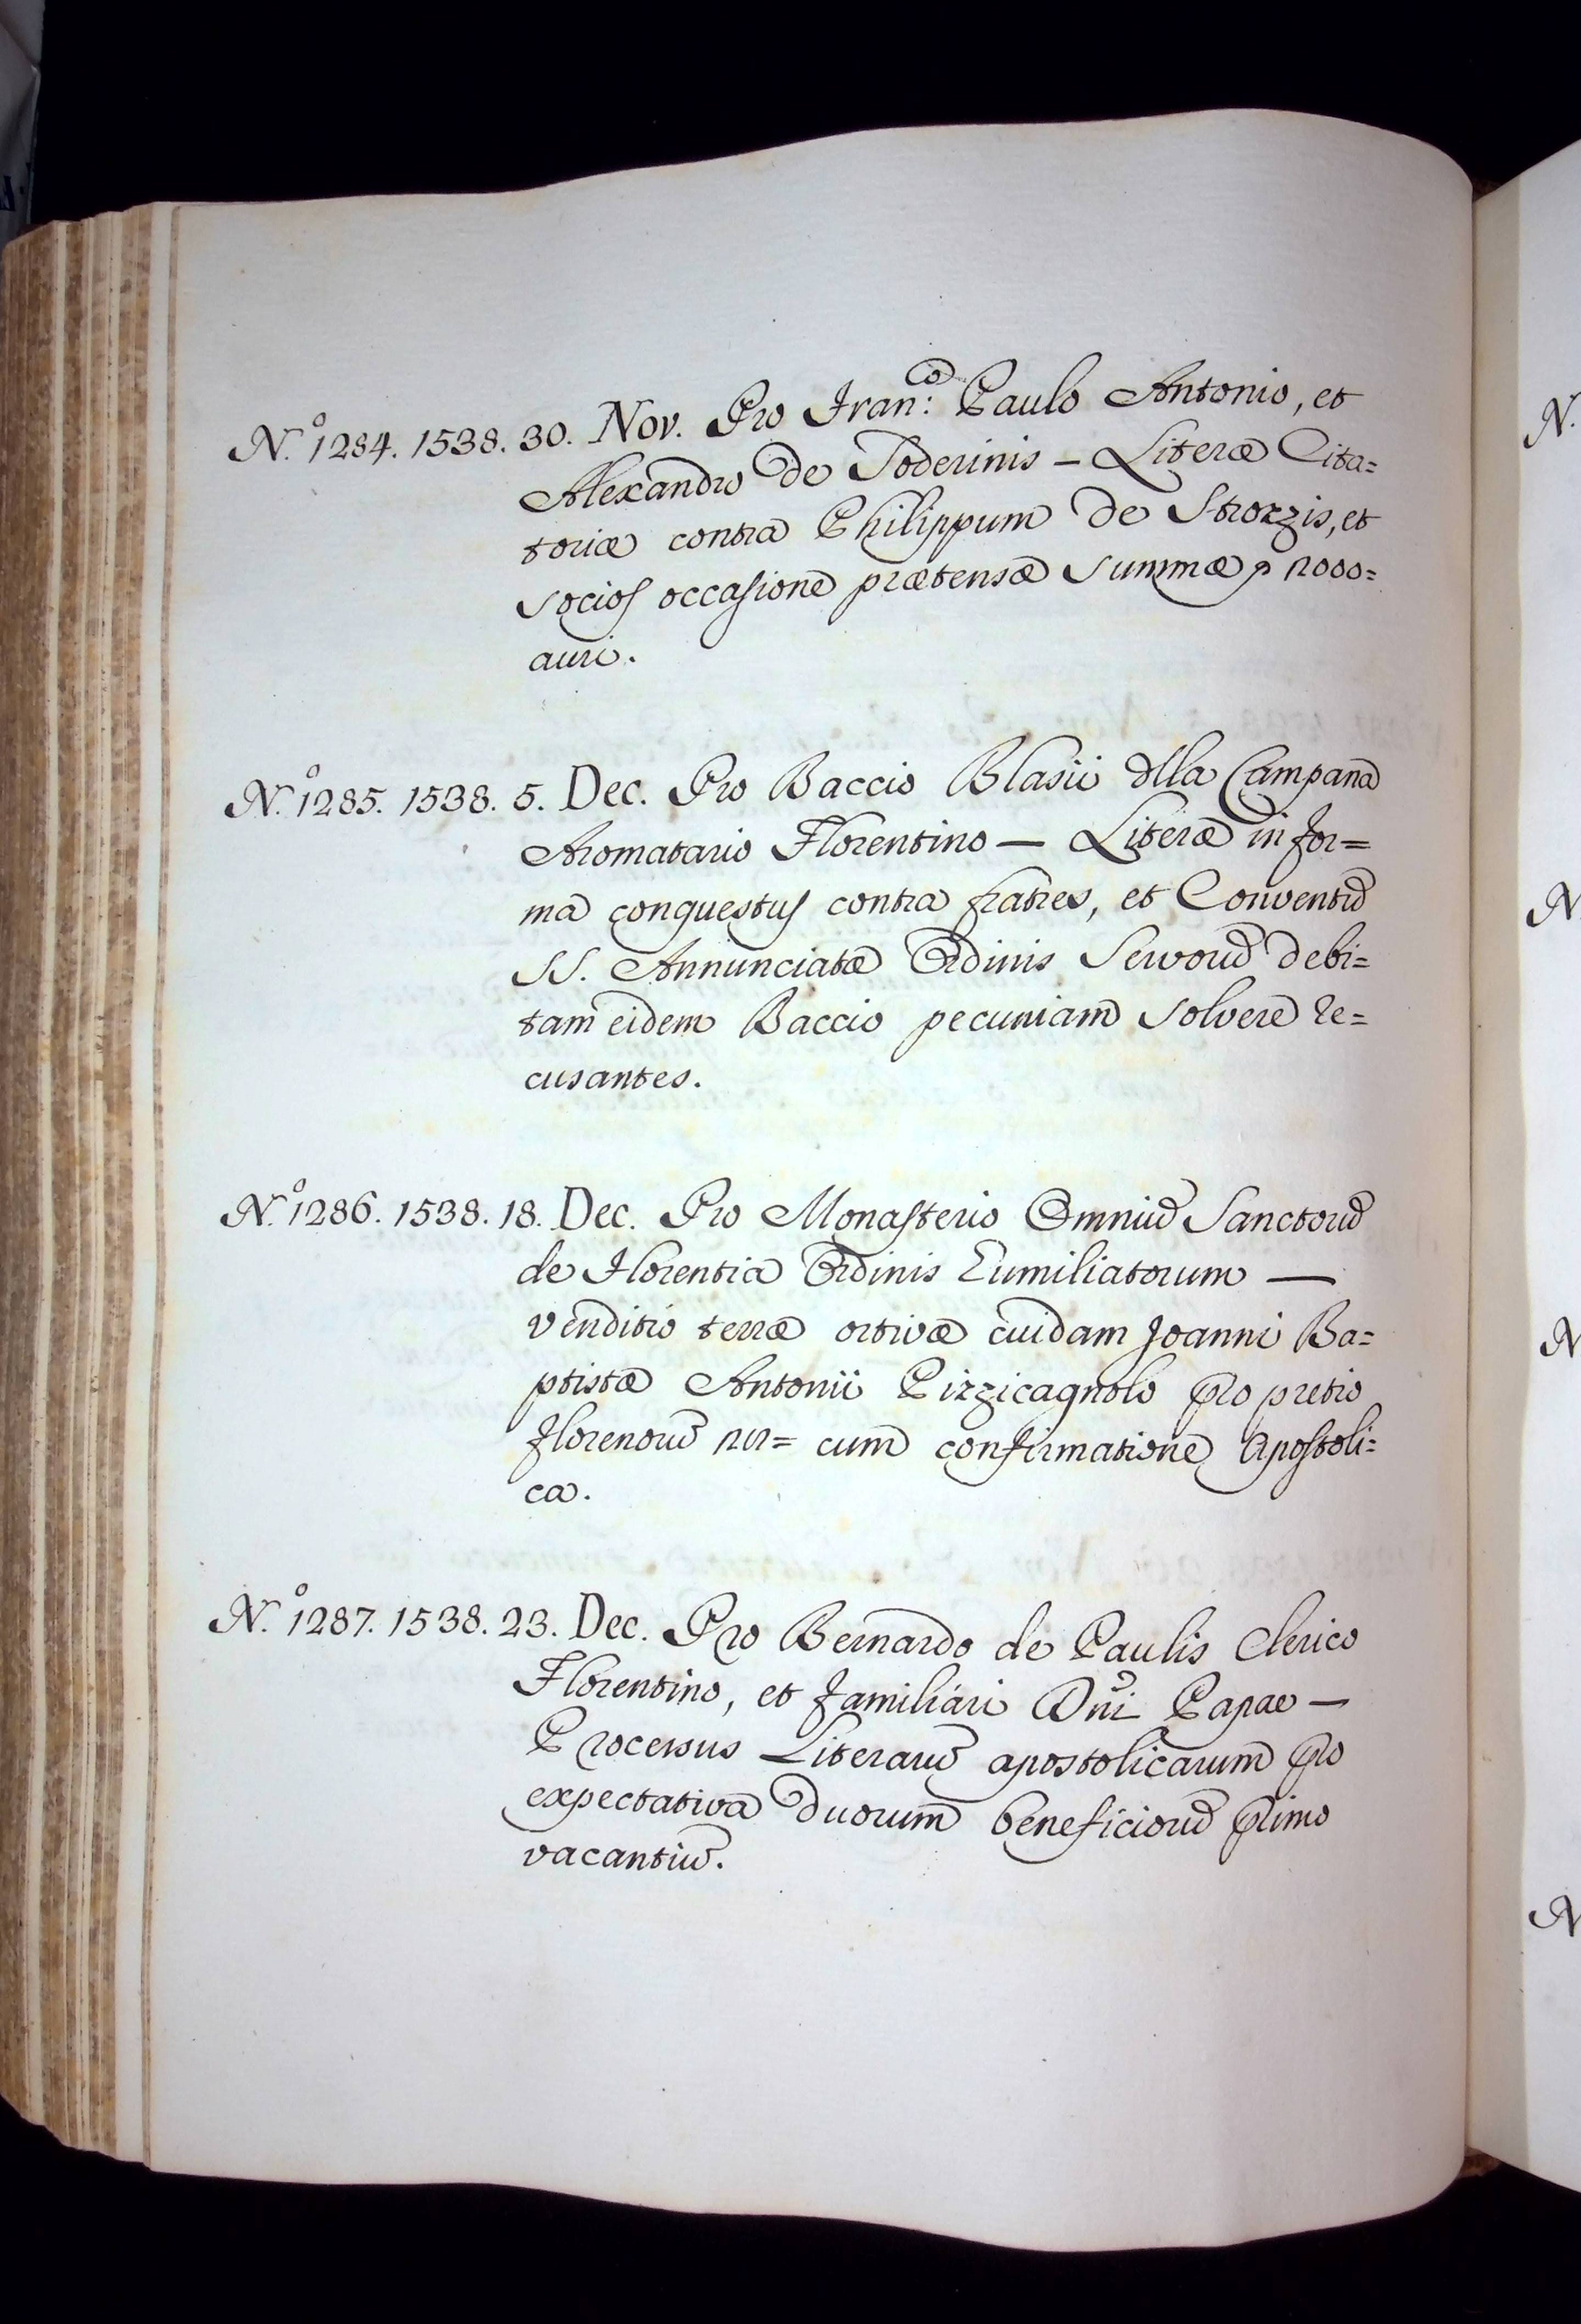 N.º 1284. 1538. 30. Nov. Pro Fran:co Paulo Antonio, et
Alexandro de Soderinis – Literæ Cita=
toriæ contra Philippum de Strozzis, et
socios occasione prætensæ summæ
auri.
N.º 1285. 1538. 5. Dec. Pro Baccio Blasii dlla Campana
Aromatario Florentino — Literæ in for=
ma conquestus contra fratres, et Conventũ
SS. Annunciatæ Ordinis Servorũ debi=
tam eidem Baccio pecuniam solvere re=
cusantes.
N.º 1286. 1538. 18. Dec. Pro Monasterio Omniũ Sanctorũ
de Florentia Ordinis Humiliatorum —
venditio terræ ortivæ cuidam Joanni Ba=
ptistæ Antonii Pizzicagnolo pro pretio
florenorũ cum confirmatione Apostoli=
ca.
N.º 1287. 1538. 23. Dec. Pro Bernardo de Paulis Clerico
Florentino, et familiari Dñi Papae —
Processus Literarũ apostolicarum pro
expectativa duorum beneficiorũ primo
vacantiũ.
N.
N
N
N